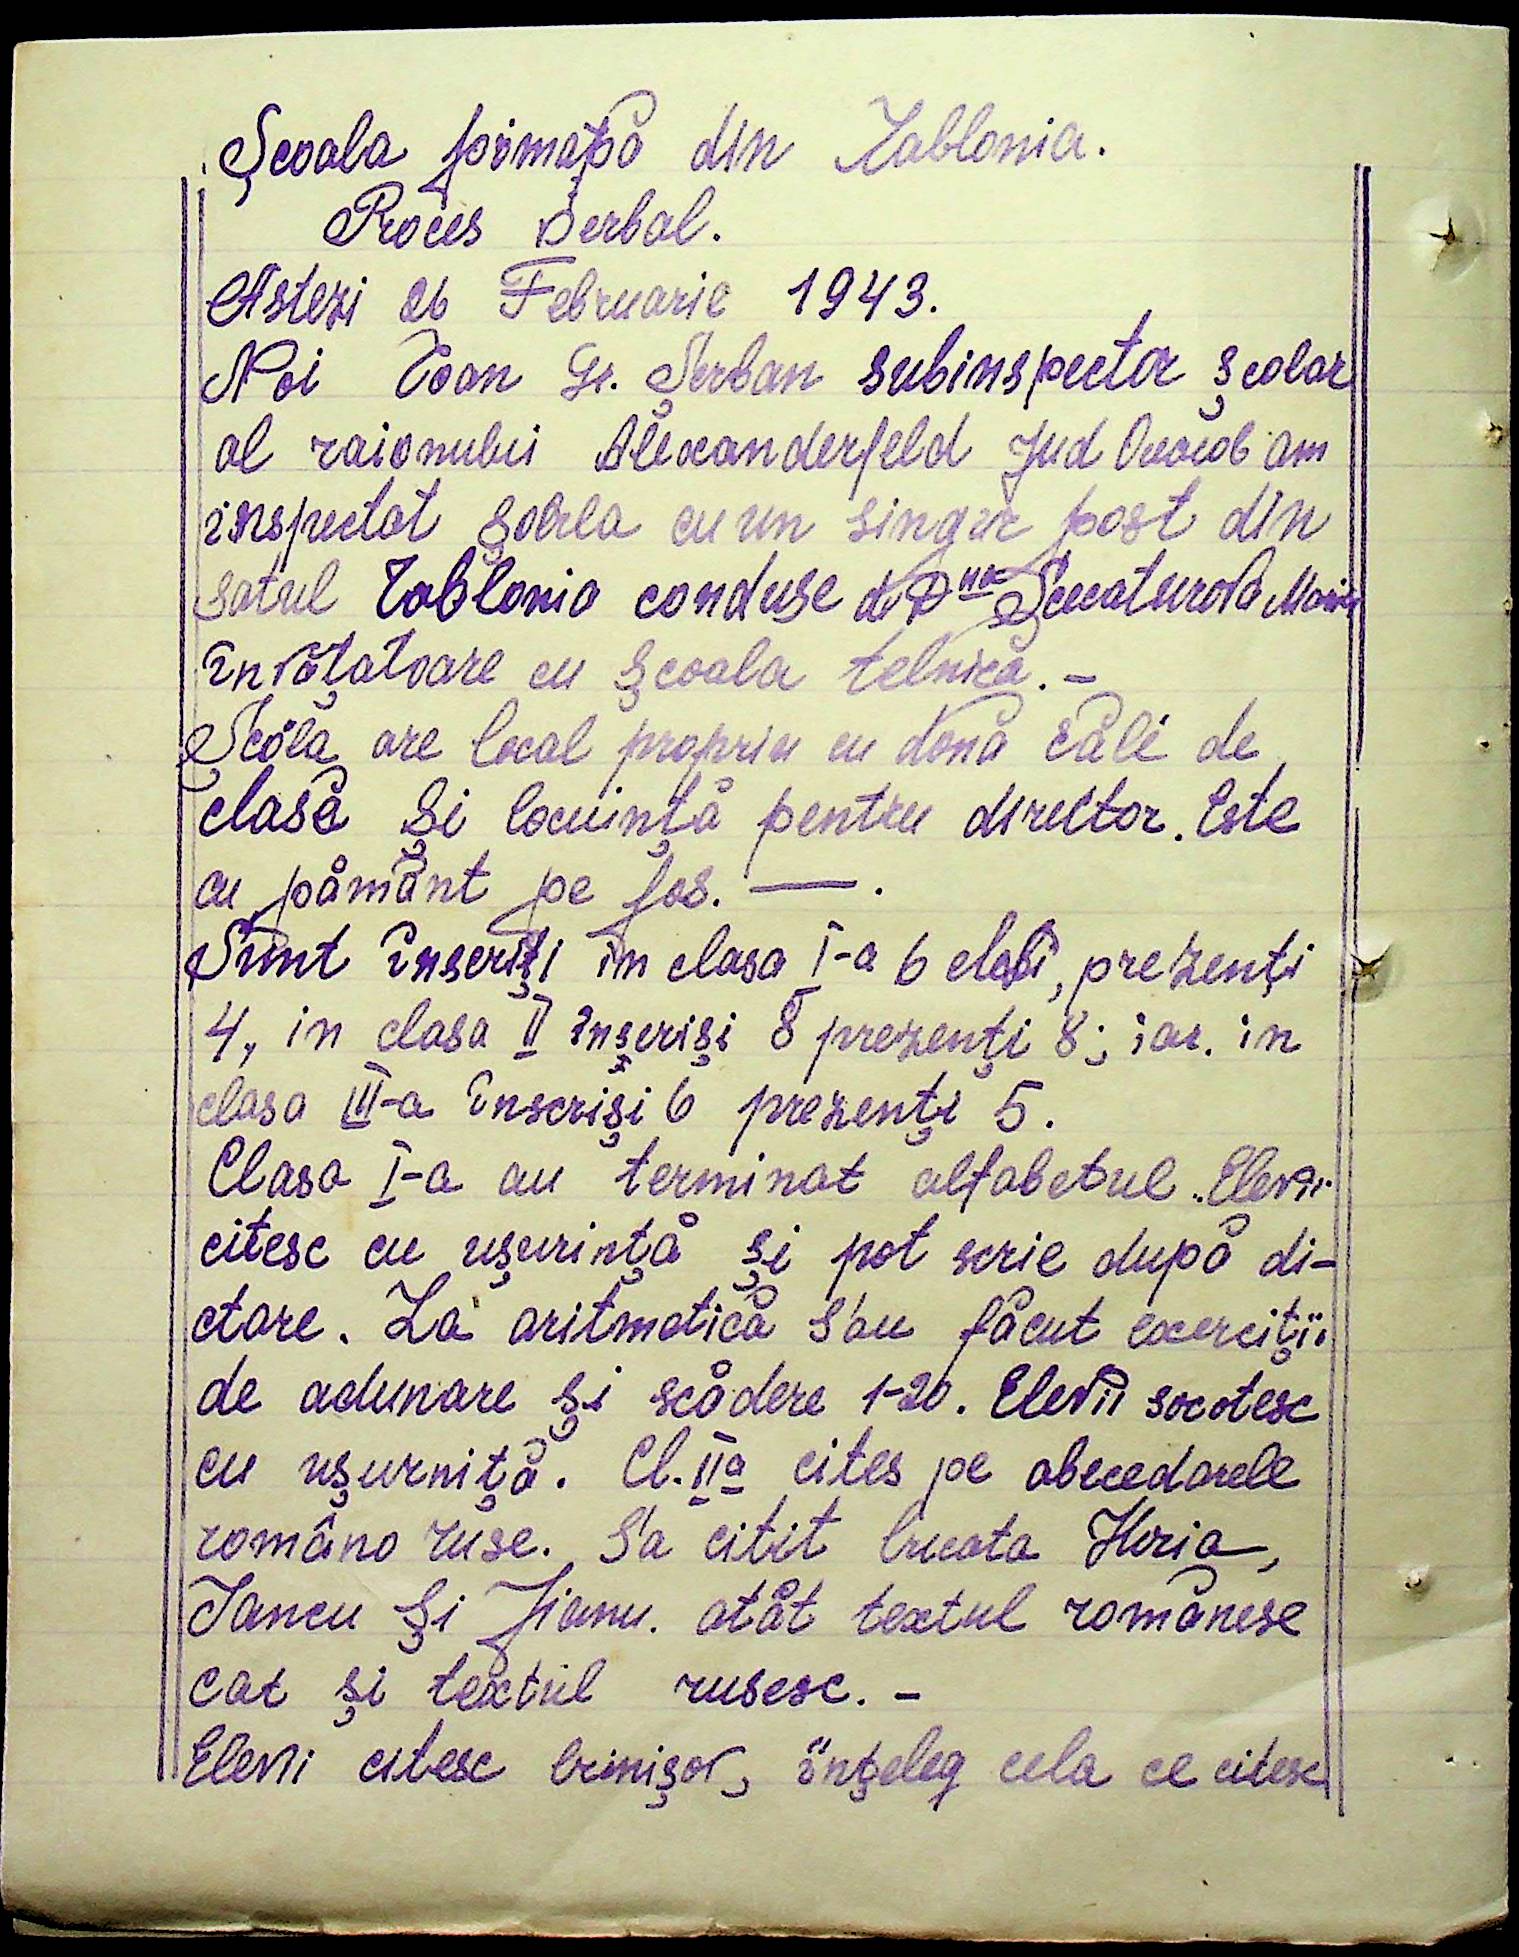 Școala primată din Iablonia.
Proces Verbal.
Astezi 26 Februarie 1943.
Noi Ioan Gr. Șerban subinspector școlar
al raionului Alexanderfeld Jud Oceacob am
inspectat școlla cu un singur post din
satul Iablonia conduse de Dna Maria
învățatoare cu școala telnică. –
Școla are local propriu cu donă căli de
clasă și locuință pentru director. Este
cu pământ pe jos. — .
Sunt înseriți in clasa I-a 6 elebi, prezenți
4, in clasa II înșeriși 8 prezenți 8; iar. in
clasa III-a înscriși 6 prezenți 5.
Clasa I-a au terminat alfabetul. Elevii
citesc cu ușurință și pot scrie după di-
ctare. La aritmetică s'au făcut exerciții
de adunare și scădere 1-20. Elevii socotesc
cu ușurniță. Cl. IIa cites pe abecedarele
româno ruse. S'a citit bucata Horia,
Iancu și Jianu. atât textul românese
cat și textul rusesc. –
Elevii citesc binișor, înțeleg cela ce citesc